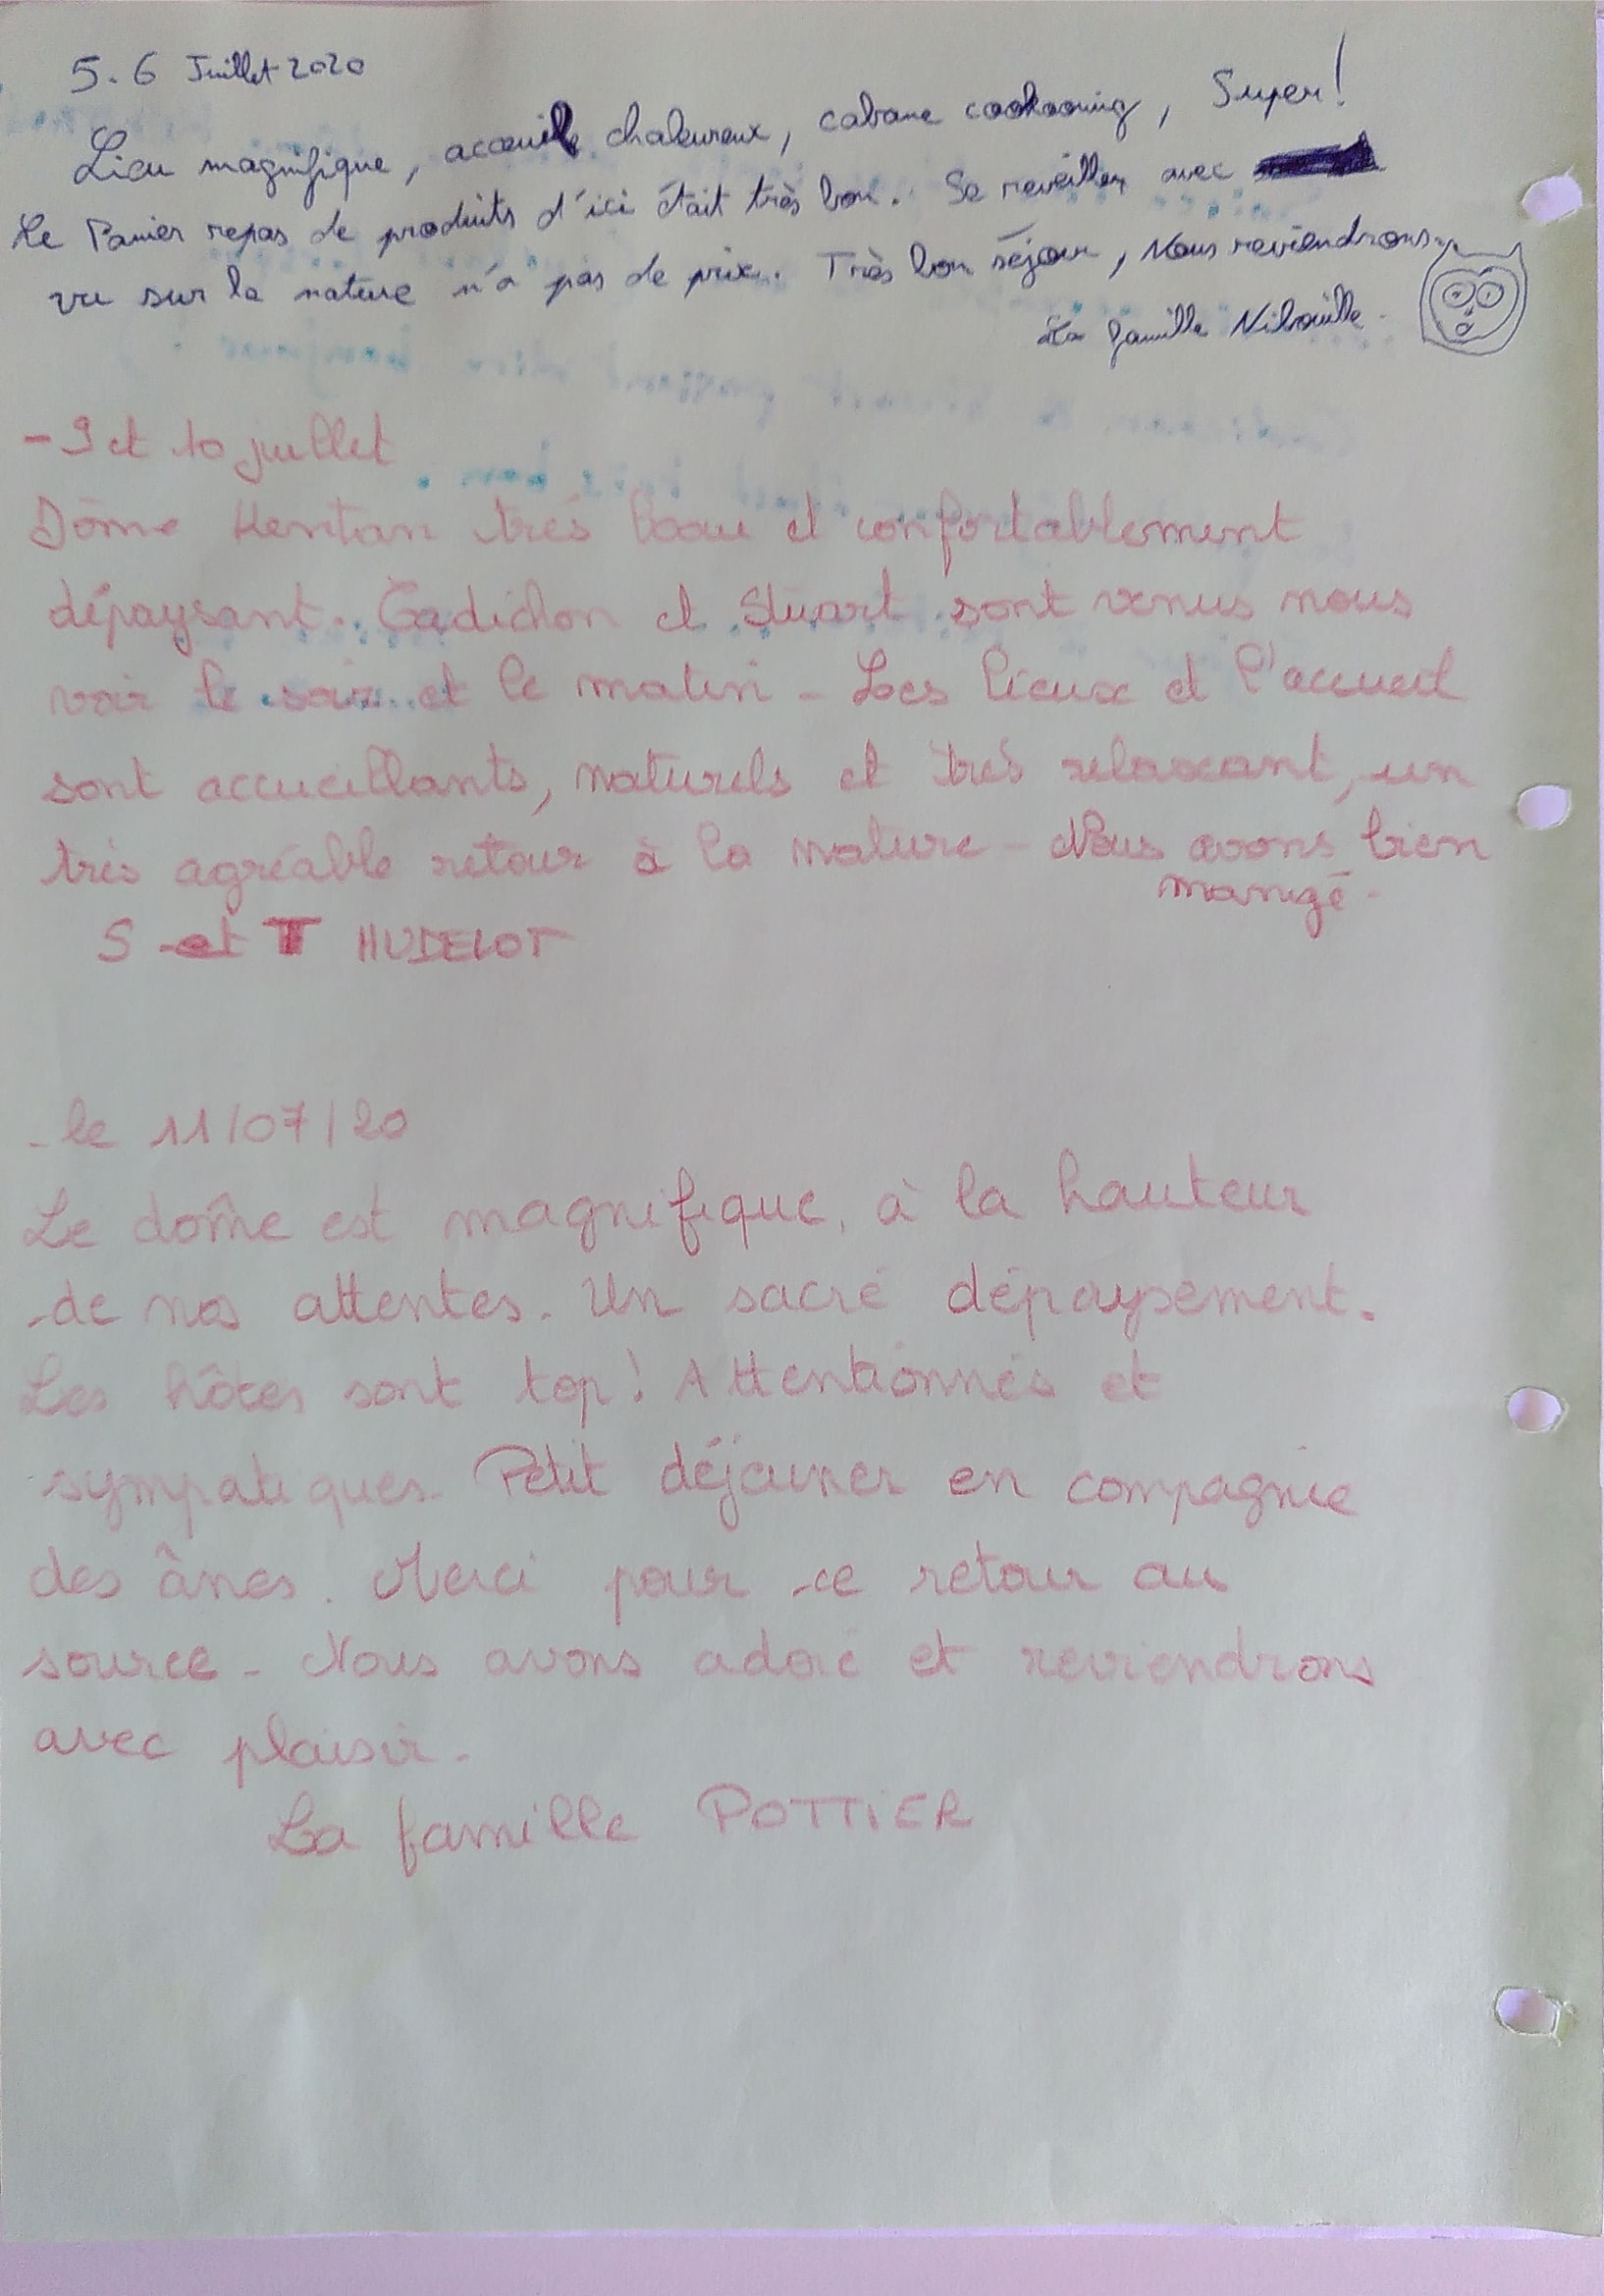 5-6 Juillet 2020
Lieu magnifique, accœuille chaleureux, cabane cookooning, Super!
Le Panier repas de produits d'ici était très bon. Se reveiller avec
vu sur la nature n'a pas de prix. Très bon séjour, Nous reviendrons.
La famille
- 9 et 10 juillet
Dôme très beau et confortablement
dépaysant. Cadichon et Stuart sont venus nous
voir le soir et le matin - Les lieux et l'accueil
sont accueillants, naturels et très relaxant, un
très agréable retour à la nature - Nous avons bien
mangé -
S et T HUDELOT
- le 11/07/20
Le dôme est magnifique, à la hauteur
de nos attentes. Un sacré dépaysement.
Les hôtes sont top! Attentionnés et
sympatiques. Petit déjeuner en compagnie
des ânes. Merci pour ce retour au
source - Nous avons adoré et reviendrons
avec plaisir.
La famille POTTIER